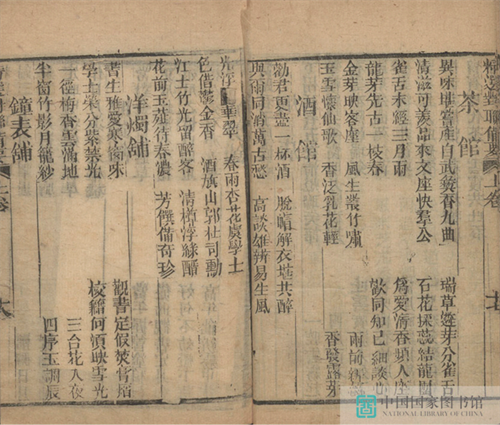 上卷
茶館
異味堪賓座自武夷香九曲 瑞草叢芽分雀舌
清滋可羨品來文座快羣公 石花採蕊結龍團
雀舌未經三月雨 為愛清香頻入座
龍芽先占一枝春 歡同知己細談心
金芽映客座 風生叢竹嘯 雨前
玉雪懷仙歌 香泛乳花輕 香發露芽
酒館
勸君更盡一杯酒 脫帽解衣堪共醉
與爾同消萬古愁 高談雄辯易生風
光浮 華翠 春雨杏花虞學士
色借鬱金香 酒旗山郭杜司勳
江土竹光留醉客 清樽浮綠醑
花前玉 待春濃 芳饌備奇珍
洋燭舖
書生雅愛寒 味 觀書定假焚膏燭
學士榮分紫禁光 校籍何須映雪光
一徑梅香雲滿地 三台花入夜
半窗竹影月籠紗 四序玉調辰
鐘表舖
上卷
中国国家图书馆
NATIONAL LIBRARY OF CHINA